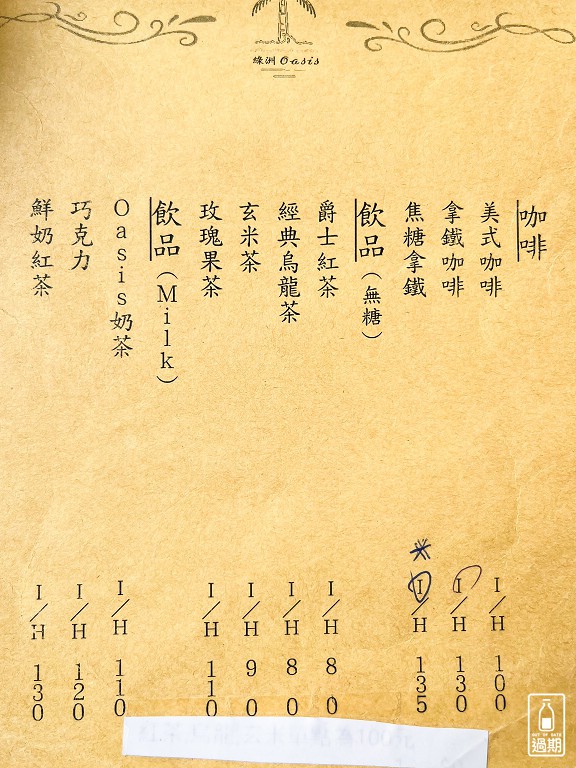 綠洲 Oasis
咖啡
美式咖啡 I/H 100
拿鐵咖啡 I/H 130
焦糖拿鐵 I/H 135
飲品（無糖）
爵士紅茶 I/H 80
經典烏龍茶 I/H 80
玄米茶 I/H 90
玫瑰果茶 I/H 110
飲品（Milk）
Oasis奶茶 I/H 110
巧克力 I/H 120
鮮奶紅茶 I/H 130
OUT OF DATE
過期